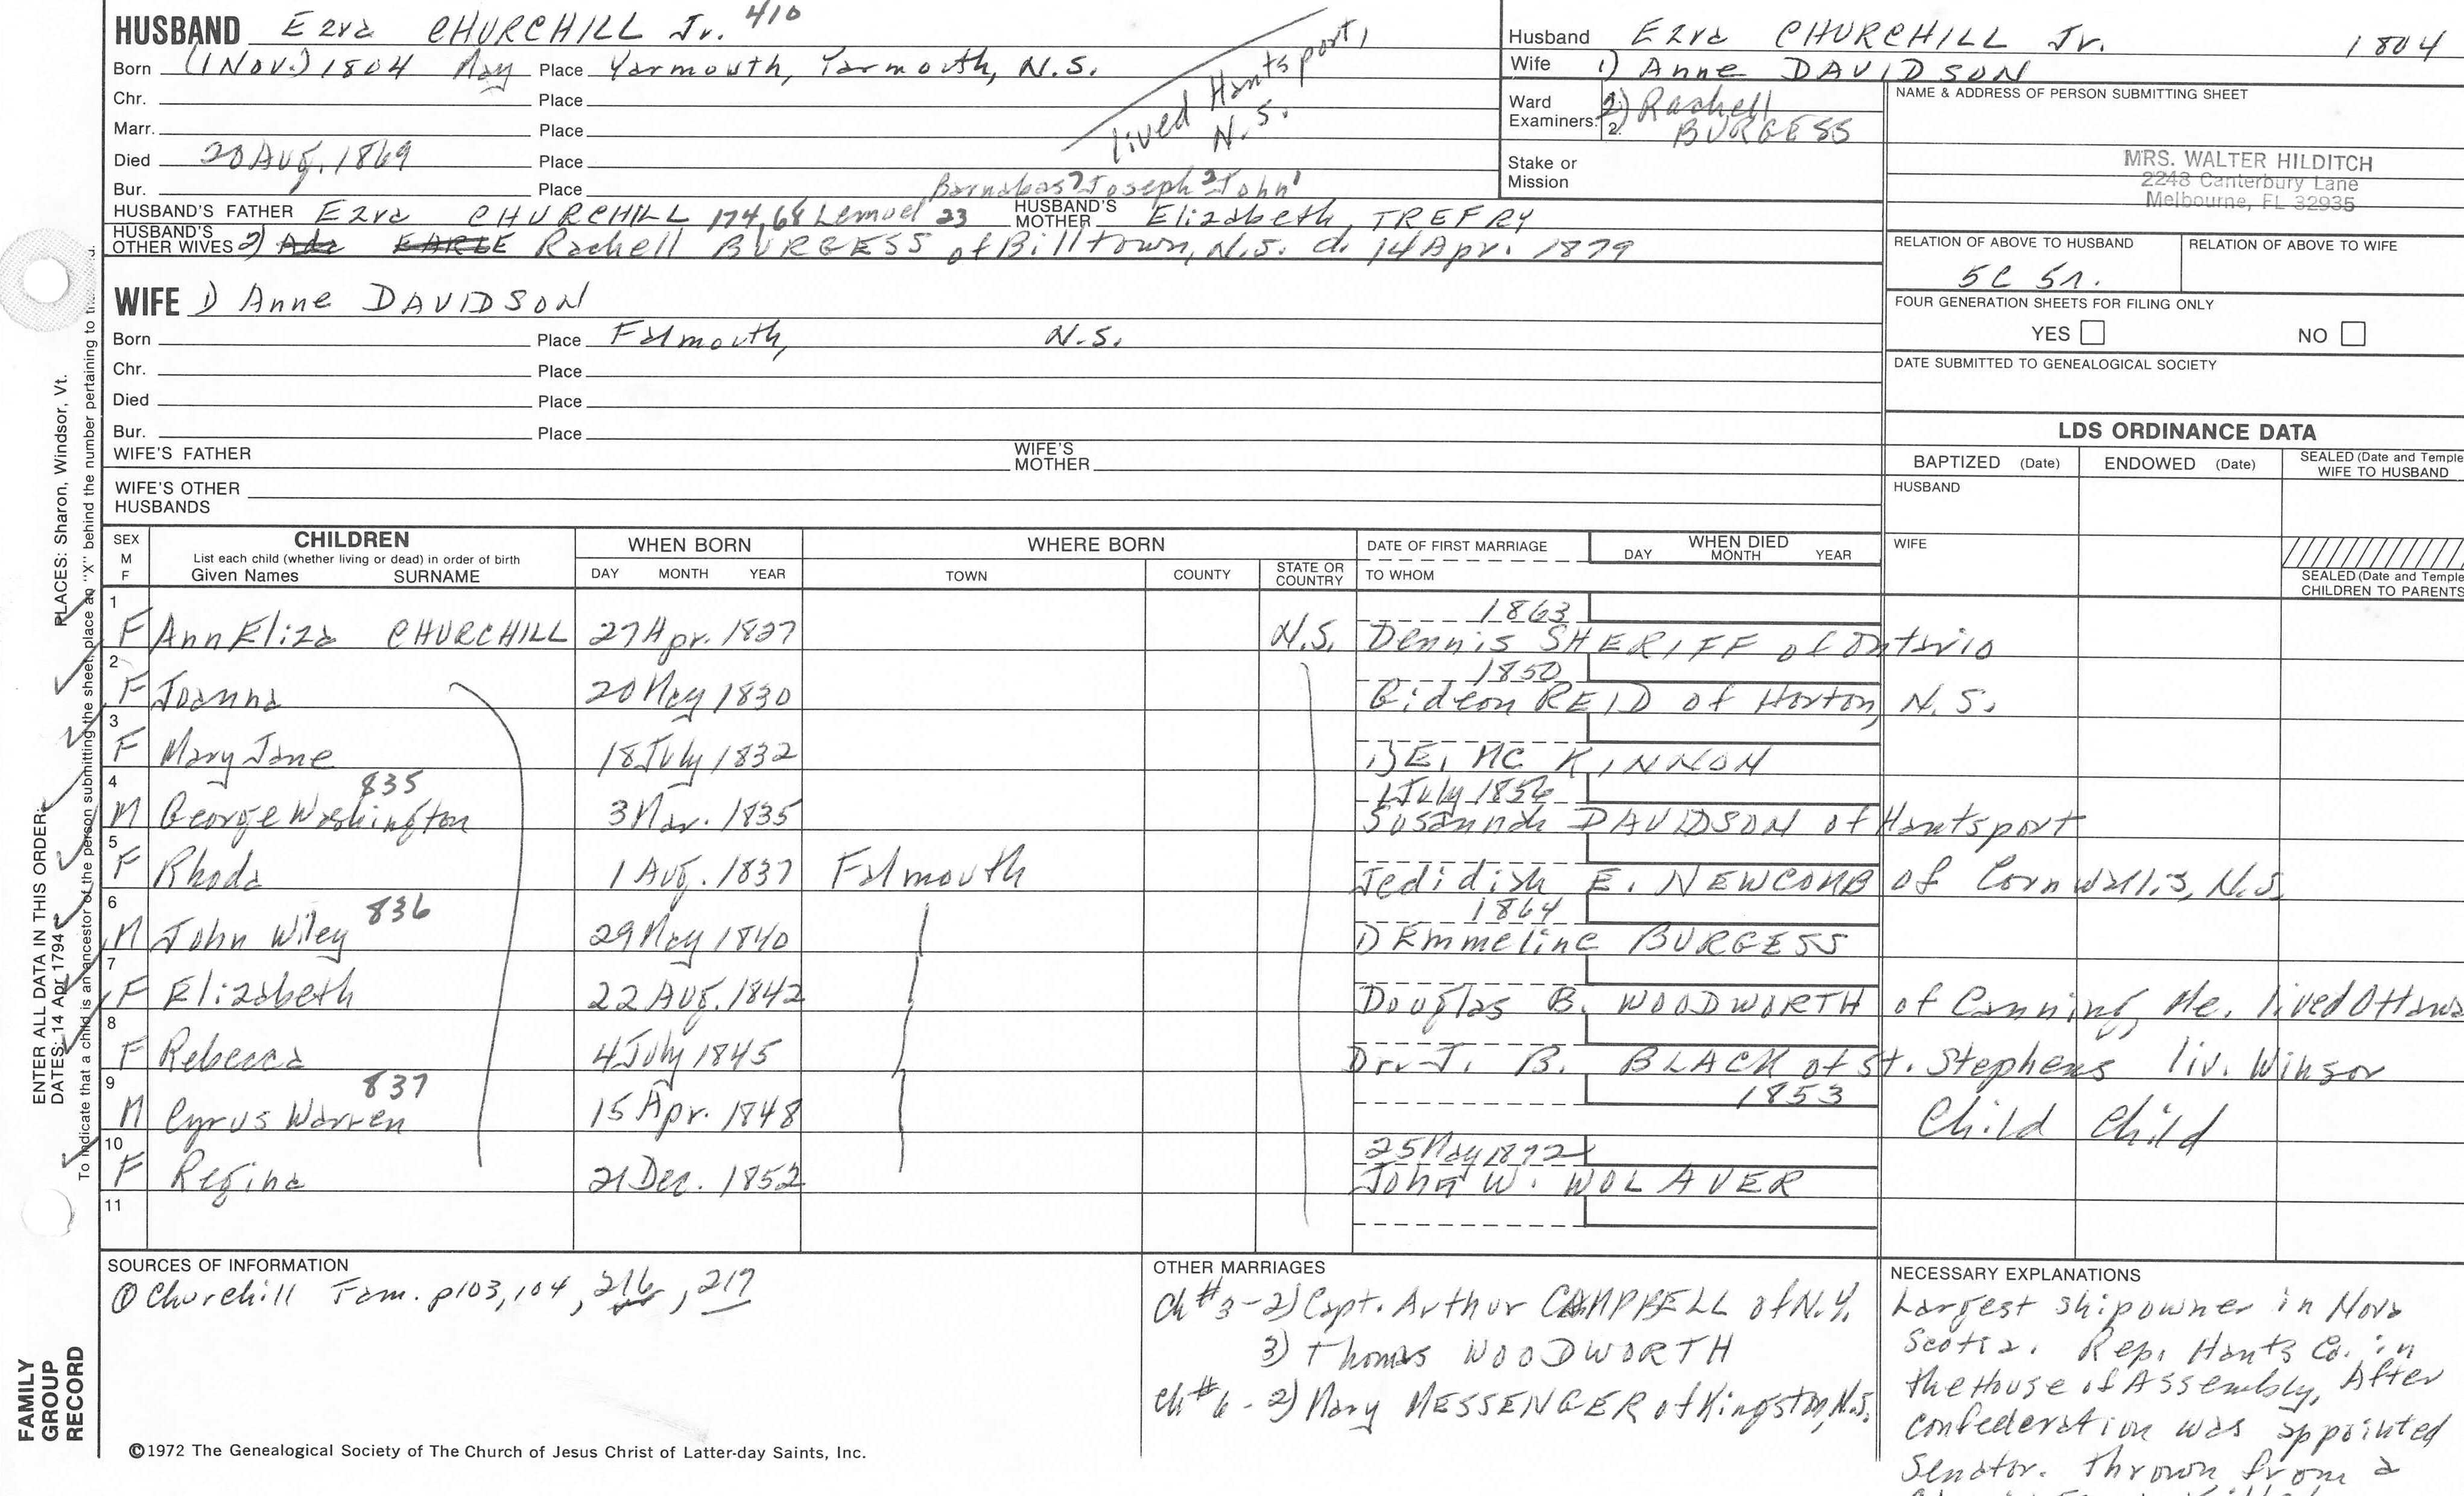 HUSBAND Ezra CHURCHILL Jr. 410
Born (1 Nov.) 1804 May Place Yarmouth, Yarmouth, N.S.
lived Hantsport, N.S.
Chr. Place
Marr. Place
Died 20 Aug. 1869 Place
Bur. Place
Barnabas³ Joseph² John¹
HUSBAND'S FATHER Ezra CHURCHILL 174, 68 Lemuel 23 HUSBAND'S MOTHER Elizabeth TREFRY
HUSBAND'S OTHER WIVES 2) Ada EARLE Rachell BURGESS of Billtown, N.S. d. 14 Apr. 1879
WIFE 1) Anne DAVIDSON
Born Place Falmouth, N.S.
Chr. Place
Died Place
Bur. Place
WIFE'S FATHER WIFE'S MOTHER
WIFE'S OTHER HUSBANDS
Husband Ezra CHURCHILL Jr. 1804
Wife 1) Anne DAVIDSON
Ward Examiners: 2) Rachell
2. BURGESS
Stake or Mission
NAME & ADDRESS OF PERSON SUBMITTING SHEET
MRS. WALTER HILDITCH
2248 Canterbury Lane
Melbourne, FL 32935
RELATION OF ABOVE TO HUSBAND RELATION OF ABOVE TO WIFE
5C 5r.
FOUR GENERATION SHEETS FOR FILING ONLY
YES NO
DATE SUBMITTED TO GENEALOGICAL SOCIETY
LDS ORDINANCE DATA
BAPTIZED (Date) ENDOWED (Date) SEALED (Date and Temple WIFE TO HUSBAND
HUSBAND
WIFE
SEALED (Date and Temple CHILDREN TO PARENTS
SEX M F CHILDREN WHEN BORN WHERE BORN DATE OF FIRST MARRIAGE WHEN DIED
List each child (whether living or dead) in order of birth DAY MONTH YEAR
Given Names SURNAME DAY MONTH YEAR TOWN COUNTY STATE OR COUNTRY TO WHOM
1 1863
F Ann Eliza CHURCHILL 27 Apr. 1827 N.S. Dennis SHERIFF of Ontario
2 1850
F Joanna 20 May 1830 Gideon REID of Horton, N.S.
3
F Mary Jane 18 July 1832 1) E. MC KINNON
4 835 1 July 1856
M George Washington 3 Mar. 1835 Susannah DAVIDSON of Hantsport
5
F Rhoda 1 Aug. 1837 Falmouth Jedidiah E. NEWCOMB of Cornwallis, N.S.
6 836 1864
M John Wiley 29 May 1840 1) Emmeline BURGESS
7
F Elizabeth 22 Aug. 1842 Douglas B. WOODWORTH of Canning, Me. lived Ottawa
8
F Rebecca 4 July 1845 Dr. J. B. BLACK of St. Stephens liv. Winsor
9 837 1853
M Cyrus Warren 15 Apr. 1848 Child Child
10 25 May 1872
F Regina 21 Dec. 1852 John W. WOLAVER
11
SOURCES OF INFORMATION
① Churchill Fam. p103, 104, 216, 217
OTHER MARRIAGES
Ch #3 - 2) Capt. Arthur CAMPBELL of N.Y.
3) Thomas WOODWORTH
Ch #6 - 2) Mary MESSENGER of Kingston, N.S.
NECESSARY EXPLANATIONS
Largest shipowner in Nova
Scotia. Rep. Hants Co. in
the House of Assembly, After
confederation was appointed
Senator. Thrown from a
©1972 The Genealogical Society of The Church of Jesus Christ of Latter-day Saints, Inc.
FAMILY
GROUP
RECORD
ENTER ALL DATA IN THIS ORDER:
DATES: 14 Apr 1794 PLACES: Sharon, Windsor, Vt.
To indicate that a child is an ancestor of the person submitting the sheet, place an "X" behind the number pertaining to